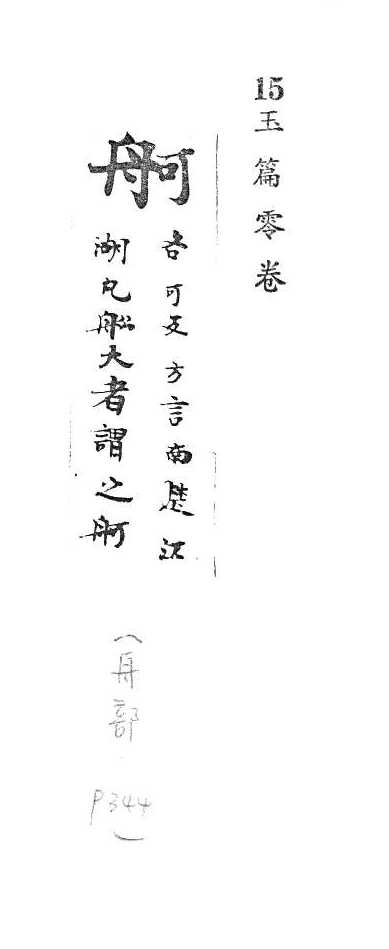 15玉篇零卷
舸
各可反方言南楚江
湖凡船大者謂之舸
（舟部 P344）